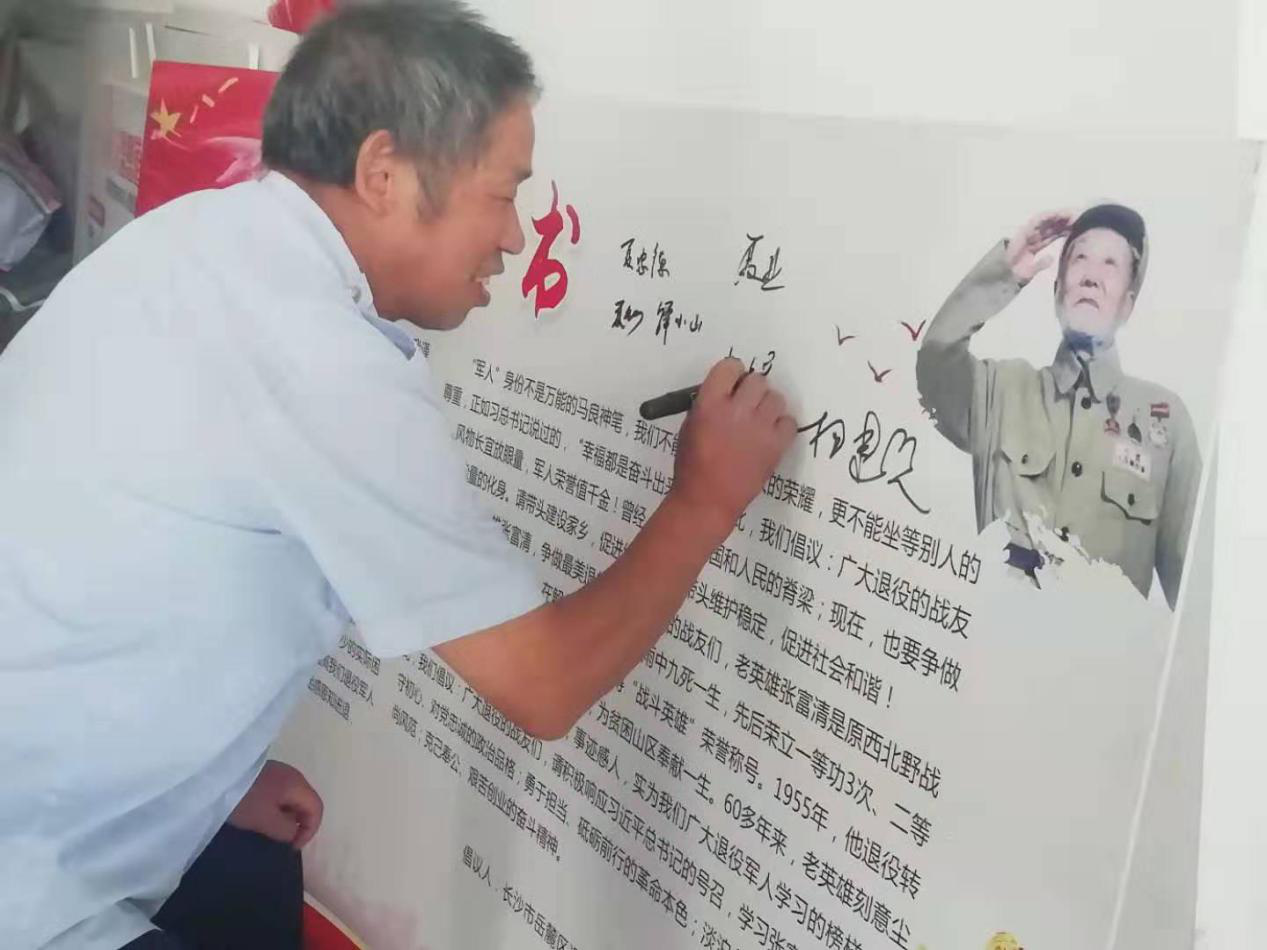 书
“军人”身份不是万能的马良神笔，我们不能 的荣耀，更不能坐等别人的
尊重，正如习总书记说过的，“幸福都是奋斗出 此，我们倡议：广大退役的战友
风物长宜放眼量，军人荣誉值千金！曾经 国和人民的脊梁；现在，也要争做
量的化身。请带头建设家乡，促进 带头维护稳定，促进社会和谐！
张富清，争做最美退 的战友们，老英雄张富清是原西北野战
雨中九死一生，先后荣立一等功3次、二等
“战斗英雄”荣誉称号。1955年，他退役转
为贫困山区奉献一生。60多年来，老英雄刻意尘
事迹感人，实为我们广大退役军人学习的榜样
，我们倡议：广大退役的战友们，请积极响应习近平总书记的号召，学习张富
守初心、对党忠诚的政治品格；勇于担当、砥砺前行的革命本色；淡泊
尚风范；克己奉公、艰苦创业的奋斗精神。
倡议人：长沙市岳麓区
少的实际困
我们退役军人